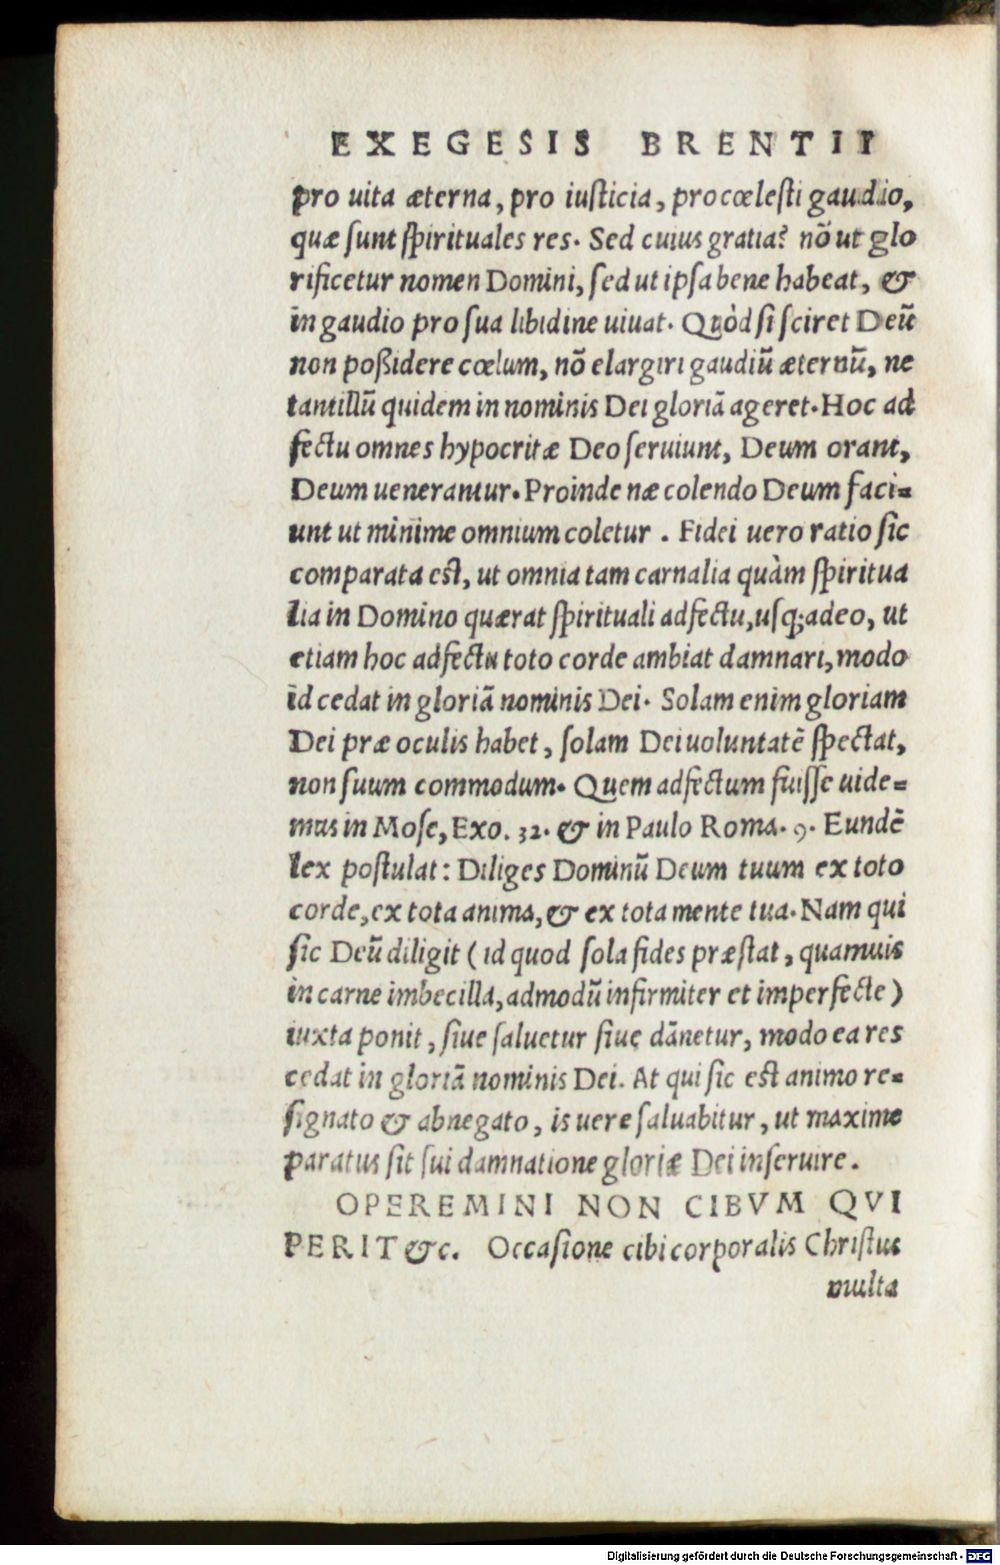 EXEGESIS BRENTII
pro uita æterna, pro iuſticia, pro cœleſti gaudio,
quæ ſunt ſpirituales res. Sed cuius gratia? nõ ut glo
rificetur nomen Domini, ſed ut ipſa bene habeat, &
in gaudio pro ſua libidine uiuat. Quòd ſi ſciret Deũ
non poßidere cœlum, nõ elargiri gaudiũ æternũ, ne
tantillũ quidem in nominis Dei gloriã ageret. Hoc ad
fectu omnes hypocritæ Deo ſeruiunt, Deum orant,
Deum uenerantur. Proinde næ colendo Deum faci=
unt ut minime omnium coletur. Fidei uero ratio ſic
comparata eſt, ut omnia tam carnalia quàm ſpiritua
lia in Domino quærat ſpirituali adfectu, uſq; adeo, ut
etiam hoc adfectu toto corde ambiat damnari, modo
id cedat in gloriã nominis Dei. Solam enim gloriam
Dei præ oculis habet, ſolam Dei uoluntatẽ ſpectat,
non ſuum commodum. Quem adfectum fuiſſe uide=
mus in Moſe, Exo. 32. & in Paulo Roma. 9. Eundẽ
lex poſtulat: Diliges Dominũ Deum tuum ex toto
corde, ex tota anima, & ex tota mente tua. Nam qui
ſic Deũ diligit (id quod ſola fides præſtat, quamuis
in carne imbecilla, admodũ infirmiter et imperfecte)
iuxta ponit, ſiue ſaluetur ſiue dãnetur, modo ea res
cedat in gloriã nominis Dei. At qui ſic eſt animo re=
ſignato & abnegato, is uere ſaluabitur, ut maxime
paratus ſit ſui damnatione gloriæ Dei inſeruire.
OPEREMINI NON CIBVM QVI
PERIT &c. Occaſione cibi corporalis Chriſtus
multa
Digitalisierung gefördert durch die Deutsche Forschungsgemeinschaft - DFG